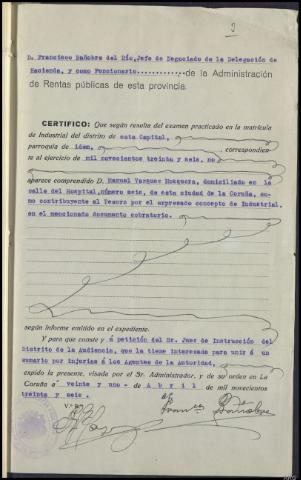 3
D. Francisco Bañobre del Río, Jefe de Negociado de la Delegación de
Hacienda, y como Funcionario.............de la Administración
de Rentas públicas de esta provincia.
CERTIFICO: Que según resulta del examen practicado en la matrícula
de Industrial del distrito de esta Capital,
parroquia de idem, correspondien-
te al ejercicio de mil novecientos treinta y seis, no
aparece comprendido D. Manuel Vazquez Mosquera, domiciliado en la
calle del Hospital, número seis, de esta ciudad de la Coruña, co-
mo contribuyente al Tesoro por el expresado concepto de Industrial,
en el mencionado documento cobratorio.
según informe emitido en el expediente.
Y para que conste y á petición del Sr. Juez de Instrucción del
Distrito de la Audiencia, que la tiene interesada para unir á un
sumario por injurias á los Agentes de la Autoridad,
expido la presente, visada por el Sr. Administrador, y de su orden en La
Coruña a veinte y uno- de A b r i l de mil novecientos
treinta y seis.
V.º B.º
Francco Bañobre